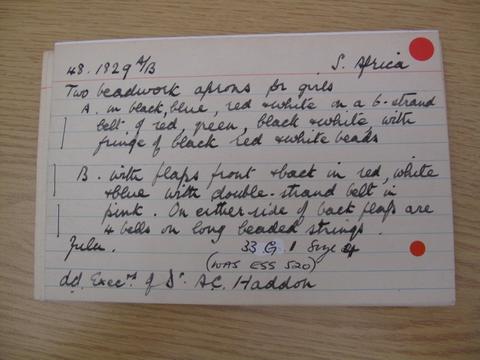 48.1829 A/B S. Africa
Two beadwork aprons for girls
A. in black, blue, red & white on a 6-strand
belt of red, green, black & white with
fringe of black red & white beads
B. with flaps front & back in red, white
& blue with double-strand belt in
pink. On either side of back flaps are
4 bells on long beaded strings.
Zulu. 33 G 1
(WAS ESS 520)
dd. Execrs of Dr A.C. Haddon